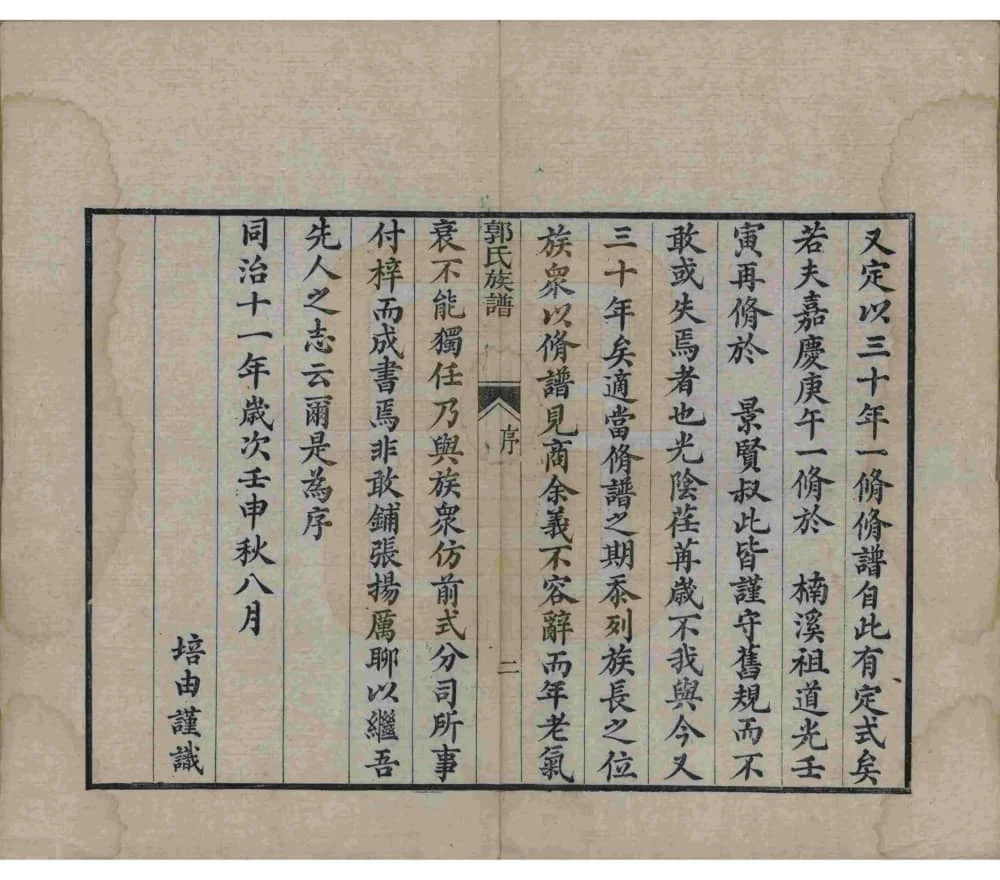 又定以三十年一脩脩譜自此有定式矣
若夫嘉慶庚午一脩於　楠溪祖道光壬
寅再脩於　景賢叔此皆謹守舊規而不
敢或失焉者也光陰荏苒歲不我與今又
三十年矣適當脩譜之期忝列族長之位
族衆以脩譜見商余義不容辭而年老氣
郭氏族譜　序　二
衰不能獨任乃與族衆仿前式分司所事
付梓而成書焉非敢鋪張揚厲聊以繼吾
先人之志云爾是為序
同治十一年歲次壬申秋八月
培由謹識